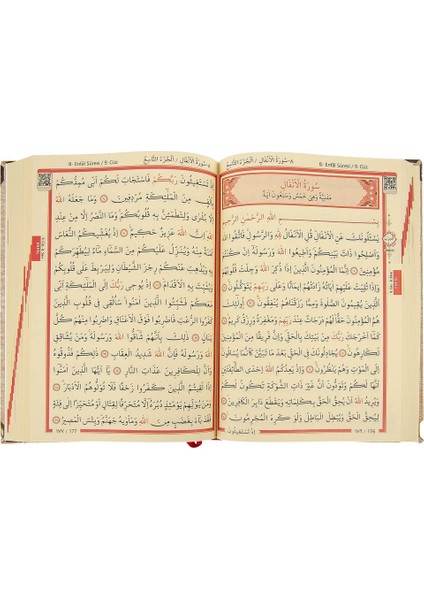 ٨-سُورَةُ الْاَنْفَالِ / اَلْجُزْءُ التَّاسِعُ 8- Enfâl Sûresi / 9. Cüz
سُورَةُ الْاَنْفَالِ
مَدَنِيَّةٌ وَهِيَ خَمْسٌ وَسَبْعُونَ اٰيَةً
بِسْمِ اللّٰهِ الرَّحْمٰنِ الرَّحِيمِ
يَسْـَٔلُونَكَ عَنِ الْاَنْفَالِ قُلِ الْاَنْفَالُ لِلّٰهِ وَالرَّسُولِ فَاتَّقُوا اللّٰهَ
وَاَصْلِحُوا ذَاتَ بَيْنِكُمْ وَاَطِيعُوا اللّٰهَ وَرَسُولَهُ اِنْ كُنْتُمْ
مُؤْمِنِينَ ۝ اِنَّمَا الْمُؤْمِنُونَ الَّذِينَ اِذَا ذُكِرَ اللّٰهُ وَجِلَتْ قُلُوبُهُمْ
وَاِذَا تُلِيَتْ عَلَيْهِمْ اٰيَاتُهُ زَادَتْهُمْ اِيمَانًا وَعَلٰى رَبِّهِمْ يَتَوَكَّلُونَ ۝
اَلَّذِينَ يُقِيمُونَ الصَّلٰوةَ وَمِمَّا رَزَقْنَاهُمْ يُنْفِقُونَ ۝ اُولٰٓئِكَ
هُمُ الْمُؤْمِنُونَ حَقًّا لَهُمْ دَرَجَاتٌ عِنْدَ رَبِّهِمْ وَمَغْفِرَةٌ وَرِزْقٌ كَرِيمٌ ۝
كَمَا اَخْرَجَكَ رَبُّكَ مِنْ بَيْتِكَ بِالْحَقِّ وَاِنَّ فَرِيقًا مِنَ الْمُؤْمِنِينَ
لَكَارِهُونَ ۝ يُجَادِلُونَكَ فِي الْحَقِّ بَعْدَ مَا تَبَيَّنَ كَاَنَّمَا يُسَاقُونَ
اِلَى الْمَوْتِ وَهُمْ يَنْظُرُونَ ۝ وَاِذْ يَعِدُكُمُ اللّٰهُ اِحْدَى الطَّٓائِفَتَيْنِ
اَنَّهَا لَكُمْ وَتَوَدُّونَ اَنَّ غَيْرَ ذَاتِ الشَّوْكَةِ تَكُونُ لَكُمْ
وَيُرِيدُ اللّٰهُ اَنْ يُحِقَّ الْحَقَّ بِكَلِمَاتِهِ وَيَقْطَعَ دَابِرَ الْكَافِرِينَ ۝
لِيُحِقَّ الْحَقَّ وَيُبْطِلَ الْبَاطِلَ وَلَوْ كَرِهَ الْمُجْرِمُونَ ۝
اِذْ تَسْتَغِيثُونَ
١٧٦ / 176
٨-سُورَةُ الْاَنْفَالِ / اَلْجُزْءُ التَّاسِعُ 8- Enfâl Sûresi / 9. Cüz
اِذْ تَسْتَغِيثُونَ رَبَّكُمْ فَاسْتَجَابَ لَكُمْ اَنِّي مُمِدُّكُمْ
بِاَلْفٍ مِنَ الْمَلٰٓئِكَةِ مُرْدِفِينَ ۝ وَمَا جَعَلَهُ اللّٰهُ
اِلَّا بُشْرٰى وَلِتَطْمَئِنَّ بِهِ قُلُوبُكُمْ وَمَا النَّصْرُ اِلَّا مِنْ عِنْدِ
اللّٰهِ اِنَّ اللّٰهَ عَزِيزٌ حَكِيمٌ ۝ اِذْ يُغَشِّيكُمُ النُّعَاسَ
اَمَنَةً مِنْهُ وَيُنَزِّلُ عَلَيْكُمْ مِنَ السَّمَٓاءِ مَٓاءً لِيُطَهِّرَكُمْ
بِهِ وَيُذْهِبَ عَنْكُمْ رِجْزَ الشَّيْطَانِ وَلِيَرْبِطَ عَلٰى قُلُوبِكُمْ
وَيُثَبِّتَ بِهِ الْاَقْدَامَ ۝ اِذْ يُوحِي رَبُّكَ اِلَى الْمَلٰٓئِكَةِ اَنِّي
مَعَكُمْ فَثَبِّتُوا الَّذِينَ اٰمَنُوا سَاُلْقِي فِي قُلُوبِ الَّذِينَ
كَفَرُوا الرُّعْبَ فَاضْرِبُوا فَوْقَ الْاَعْنَاقِ وَاضْرِبُوا مِنْهُمْ كُلَّ
بَنَانٍ ۝ ذٰلِكَ بِاَنَّهُمْ شَٓاقُّوا اللّٰهَ وَرَسُولَهُ وَمَنْ يُشَاقِقِ
اللّٰهَ وَرَسُولَهُ فَاِنَّ اللّٰهَ شَدِيدُ الْعِقَابِ ۝ ذٰلِكُمْ فَذُوقُوهُ
وَاَنَّ لِلْكَافِرِينَ عَذَابَ النَّارِ ۝ يَٓا اَيُّهَا الَّذِينَ اٰمَنُوا
اِذَا لَقِيتُمُ الَّذِينَ كَفَرُوا زَحْفًا فَلَا تُوَلُّوهُمُ الْاَدْبَارَ ۝
وَمَنْ يُوَلِّهِمْ يَوْمَئِذٍ دُبُرَهُ اِلَّا مُتَحَرِّفًا لِقِتَالٍ اَوْ مُتَحَيِّزًا اِلٰى فِئَةٍ
فَقَدْ بَٓاءَ بِغَضَبٍ مِنَ اللّٰهِ وَمَأْوٰيهُ جَهَنَّمُ وَبِئْسَ الْمَصِيرُ ۝
١٧٧ / 177